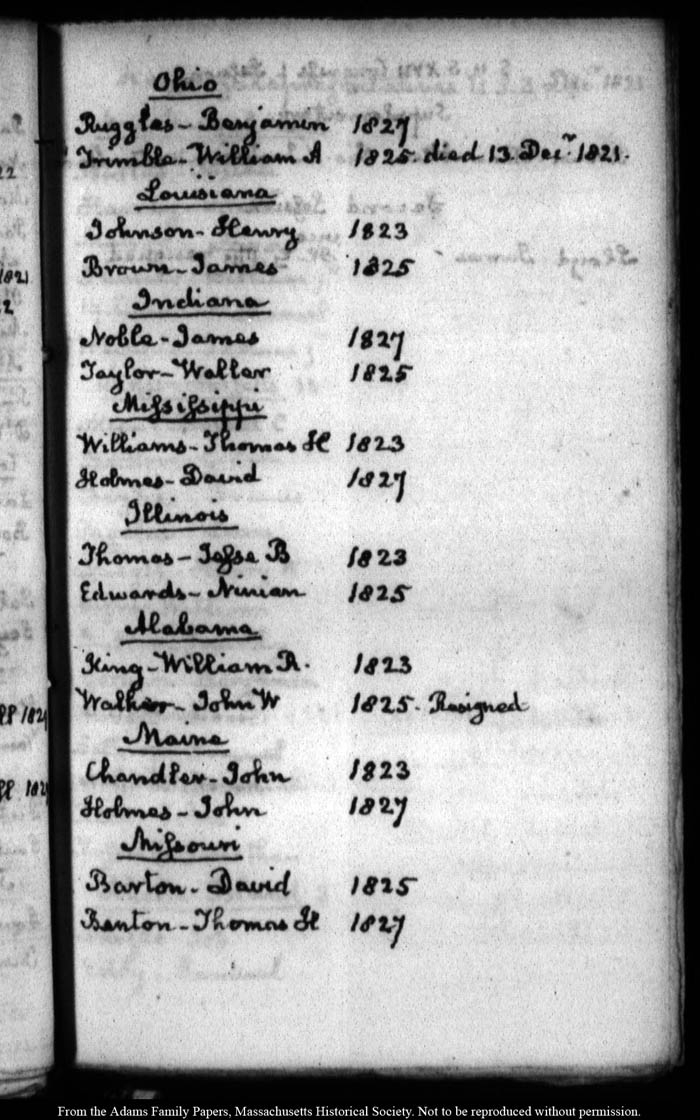 Ohio
Ruggles - Benjamin 1827
Trimble - William A 1825. died 13. Decr. 1821.
Louisiana
Johnson - Henry 1823
Brown - James 1825
Indiana
Noble - James 1827
Taylor - Waller 1825
Mifsifsippi
Williams - Thomas H 1823
Holmes - David 1827
Illinois
Thomas - Jefse B 1823
Edwards - Ninian 1825
Alabama
King - William R. 1823
Walker - John W 1825. Resigned
Maine
Chandler - John 1823
Holmes - John 1827
Mifsouri
Barton - David 1825
Benton - Thomas H 1827
1821
From the Adams Family Papers, Massachusetts Historical Society. Not to be reproduced without permission.